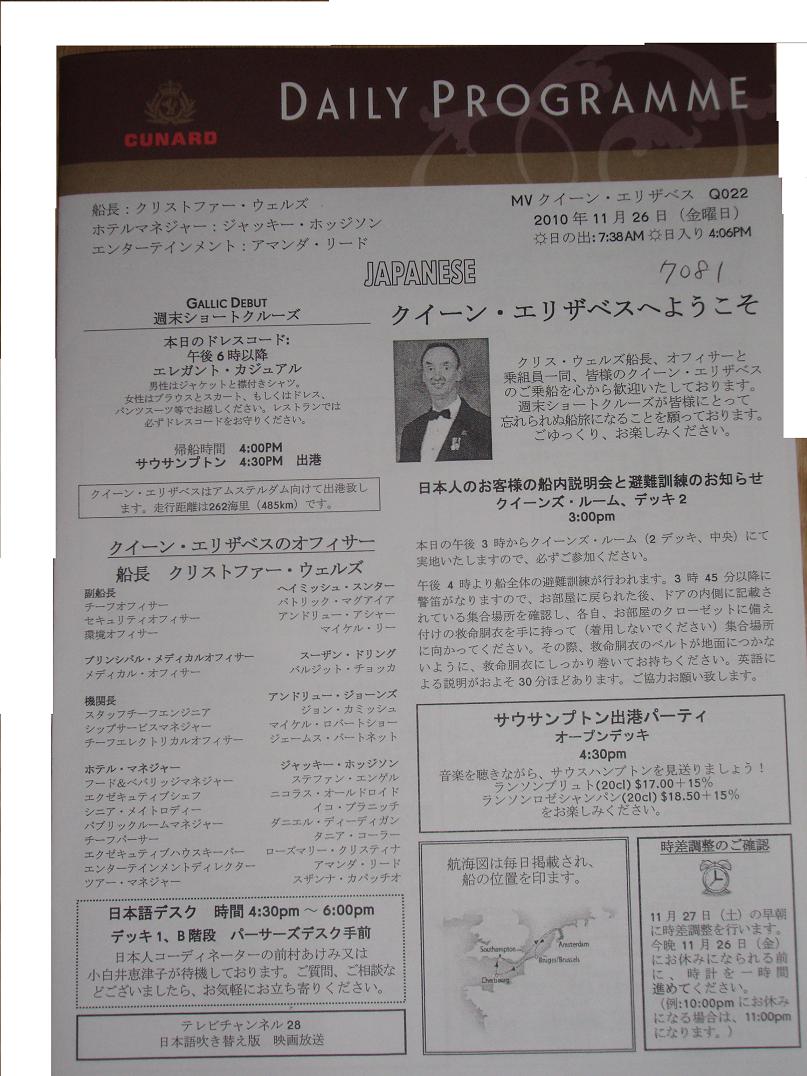 DAILY PROGRAMME
CUNARD
船長：クリストファー・ウェルズ
ホテルマネジャー：ジャッキー・ホッジソン
エンターテインメント：アマンダ・リード
MV クイーン・エリザベス Q022
2010 年 11 月 26 日（金曜日）
日の出: 7:38AM 日入り 4:06PM
JAPANESE
7081
GALLIC DEBUT
週末ショートクルーズ
本日のドレスコード:
午後 6 時以降
エレガント・カジュアル
男性はジャケットと襟付きシャツ。
女性はブラウスとスカート、もしくはドレス、
パンツスーツ等でお越しください。レストランでは
必ずドレスコードをお守りください。
帰船時間 4:00PM
サウサンプトン 4:30PM 出港
クイーン・エリザベスはアムステルダム向けて出港致し
ます。走行距離は262海里（485km）です。
クイーン・エリザベスのオフィサー
船長 クリストファー・ウェルズ
副船長 ヘイミッシュ・スンター
チーフオフィサー パトリック・マグアイア
セキュリティオフィサー アンドリュー・アシャー
環境オフィサー マイケル・リー
プリンシパル・メディカルオフィサー スーザン・ドリング
メディカル・オフィサー バルジット・チョッカ
機関長 アンドリュー・ジョーンズ
スタッフチーフエンジニア ジョン・カミッシュ
シップサービスマネジャー マイケル・ロバートショー
チーフエレクトリカルオフィサー ジェームス・バートネット
ホテル・マネジャー ジャッキー・ホッジソン
フード＆ベバリッジマネジャー ステファン・エンゲル
エクゼキュティブシェフ ニコラス・オールドロイド
シニア・メイトロディー イコ・ブラニッチ
パブリックルームマネジャー ダニエル・ディーディガン
チーフパーサー タニア・コーラー
エクゼキュティブハウスキーパー ローズマリー・クリスティナ
エンターテインメントディレクター アマンダ・リード
ツアー・マネジャー スザンナ・カパッチオ
日本語デスク 時間 4:30pm ～ 6:00pm
デッキ 1、B 階段 パーサーズデスク手前
日本人コーディネーターの前村あけみ又は
小白井恵津子が待機しております。ご質問、ご相談な
どございましたら、お気軽にお立ち寄りください。
テレビチャンネル 28
日本語吹き替え版 映画放送
クイーン・エリザベスへようこそ
クリス・ウェルズ船長、オフィサーと
乗組員一同、皆様のクイーン・エリザベス
のご乗船を心から歓迎いたしております。
週末ショートクルーズが皆様にとって
忘れられぬ船旅になることを願っております。
ごゆっくり、お楽しみください。
日本人のお客様の船内説明会と避難訓練のお知らせ
クイーンズ・ルーム、デッキ 2
3:00pm
本日の午後 3 時からクイーンズ・ルーム（2 デッキ、中央）にて
実地いたしますので、必ずご参加ください。
午後 4 時より船全体の避難訓練が行われます。3 時 45 分以降に
警笛がなりますので、お部屋に戻られた後、ドアの内側に記載さ
れている集合場所を確認し、各自、お部屋のクローゼットに備え
付けの救命胴衣を手に持って（着用しないでください）集合場所
に向かってください。その際、救命胴衣のベルトが地面につかな
いように、救命胴衣にしっかり巻いてお持ちください。英語に
よる説明がおよそ 30 分ほどあります。ご協力お願い致します。
サウサンプトン出港パーティ
オープンデッキ
4:30pm
音楽を聴きながら、サウスハンプトンを見送りましょう！
ランソンブリュト(20cl) $17.00＋15%
ランソンロゼシャンパン(20cl) $18.50＋15%
をお楽しみください。
航海図は毎日掲載され、
船の位置を印ます。
Southampton
Amsterdam
Bruges/Brussels
Cherbourg
時差調整のご確認
11 月 27 日（土）の早朝
に時差調整を行います。
今晩 11 月 26 日（金）
にお休みになられる前
に、時計を一時間
進めてください。
（例:10:00pm にお休み
になる場合は、11:00pm
になります。）